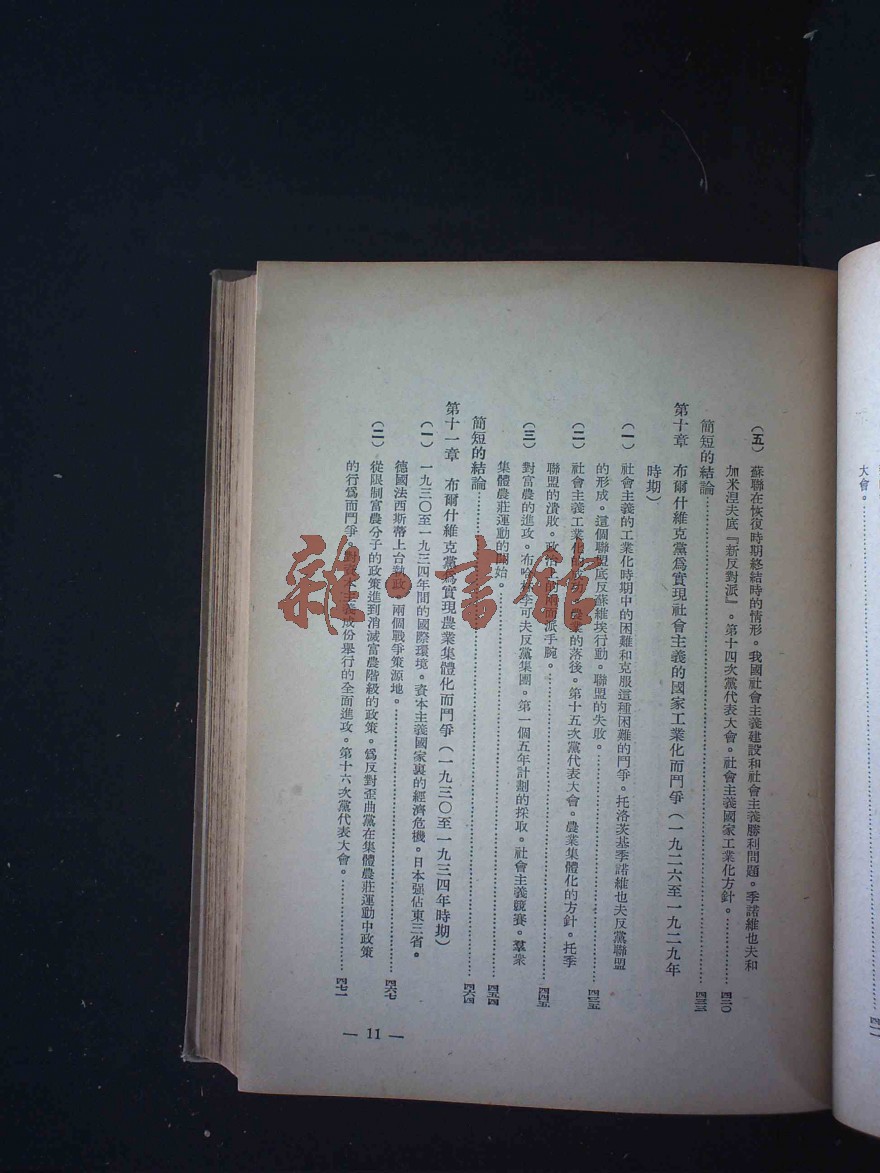 (五) 蘇聯在恢復時期終結時的情形。我國社會主義建設和社會主義勝利問題。季諾維也夫和
加米涅夫底『新反對派』。第十四次黨代表大會。社會主義國家工業化方針。……四二〇
簡短的結論……四三三
第十章 布爾什維克黨爲實現社會主義的國家工業化而鬥爭(一九二六至一九二九年
時期)
(一) 社會主義的工業化時期中的困難和克服這種困難的鬥爭。托洛茨基季諾維也夫反黨聯盟
的形成。這個聯盟底反蘇維埃行動。聯盟的失敗。……四三五
(二) 社會主義工業化的成功。農業的落後。第十五次黨代表大會。農業集體化的方針。托季
聯盟的潰敗。政治上的兩面派手腕。……四四五
(三) 對富農的進攻。布哈林李可夫反黨集團。第一個五年計劃的採取。社會主義競賽。羣衆
集體農莊運動的開始。……四五四
簡短的結論……四六四
第十一章 布爾什維克黨爲實現農業集體化而鬥爭(一九三〇至一九三四年時期)
(一) 一九三〇至一九三四年間的國際環境。資本主義國家裏的經濟危機。日本强佔東三省。
德國法西斯蒂上台執政。兩個戰爭策源地。……四六七
(二) 從限制富農分子的政策進到消滅富農階級的政策。爲反對歪曲黨在集體農莊運動中政策
的行爲而鬥爭。對資本主義成份舉行的全面進攻。第十六次黨代表大會。……四七一
— 11 —
大會。
雜·書館